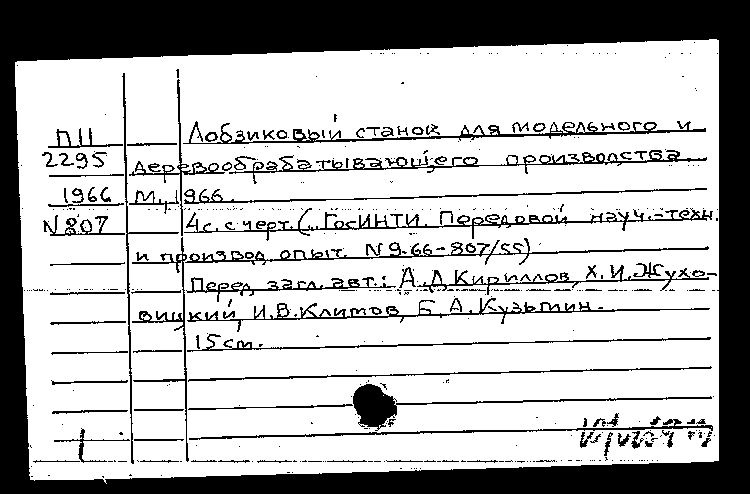 П11 Лобзиковый станок для модельного и
2295 деревообрабатывающего производства.
1966 М., 1966.
N 807 4с. с черт. (ГосИНТИ. Передовой науч.-техн.
и производ. опыт. N 9-66-807/55)
Перед загл. авт.: А.Д. Кириллов, Х.И. Жухо-
вицкий, И.В. Климов, Б.А. Кузьмин.
15 см.
1